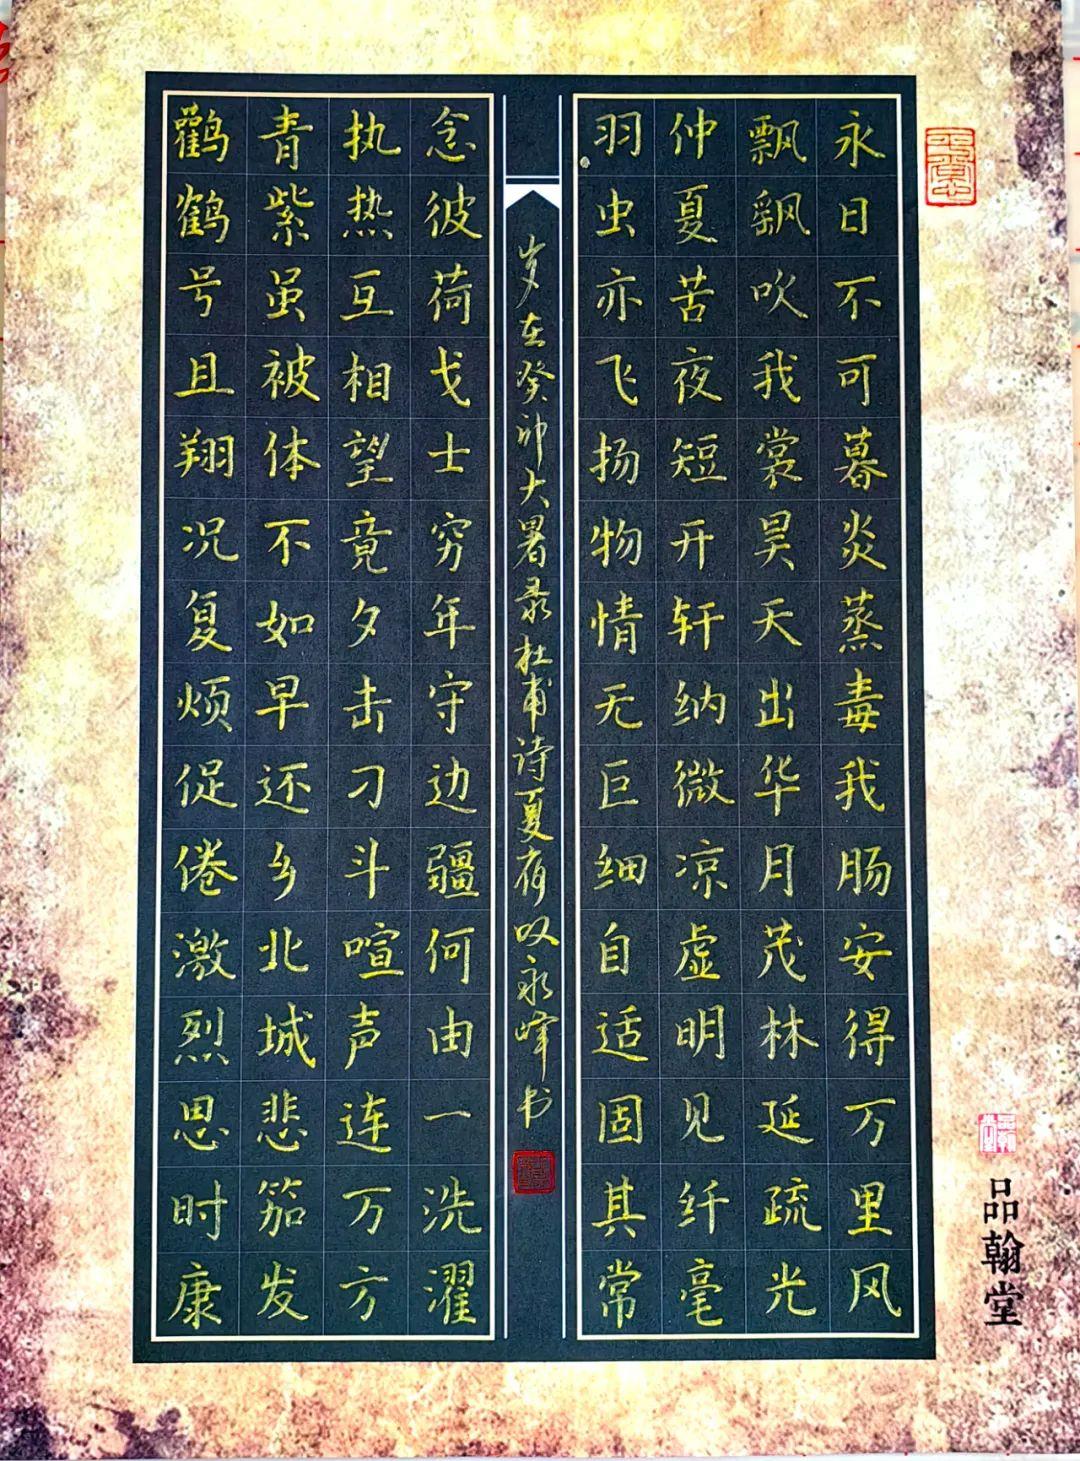 永日不可暮炎蒸毒我肠安得万里风
飘飖吹我裳昊天出华月茂林延疏光
仲夏苦夜短开轩纳微凉虚明见纤毫
羽虫亦飞扬物情无巨细自适固其常
岁在癸卯大暑录杜甫诗夏夜叹永峰书
念彼荷戈士穷年守边疆何由一洗濯
执热互相望竟夕击刁斗喧声连万方
青紫虽被体不如早还乡北城悲笳发
鹳鹤号且翔况复烦促倦激烈思时康
品翰堂
品翰堂